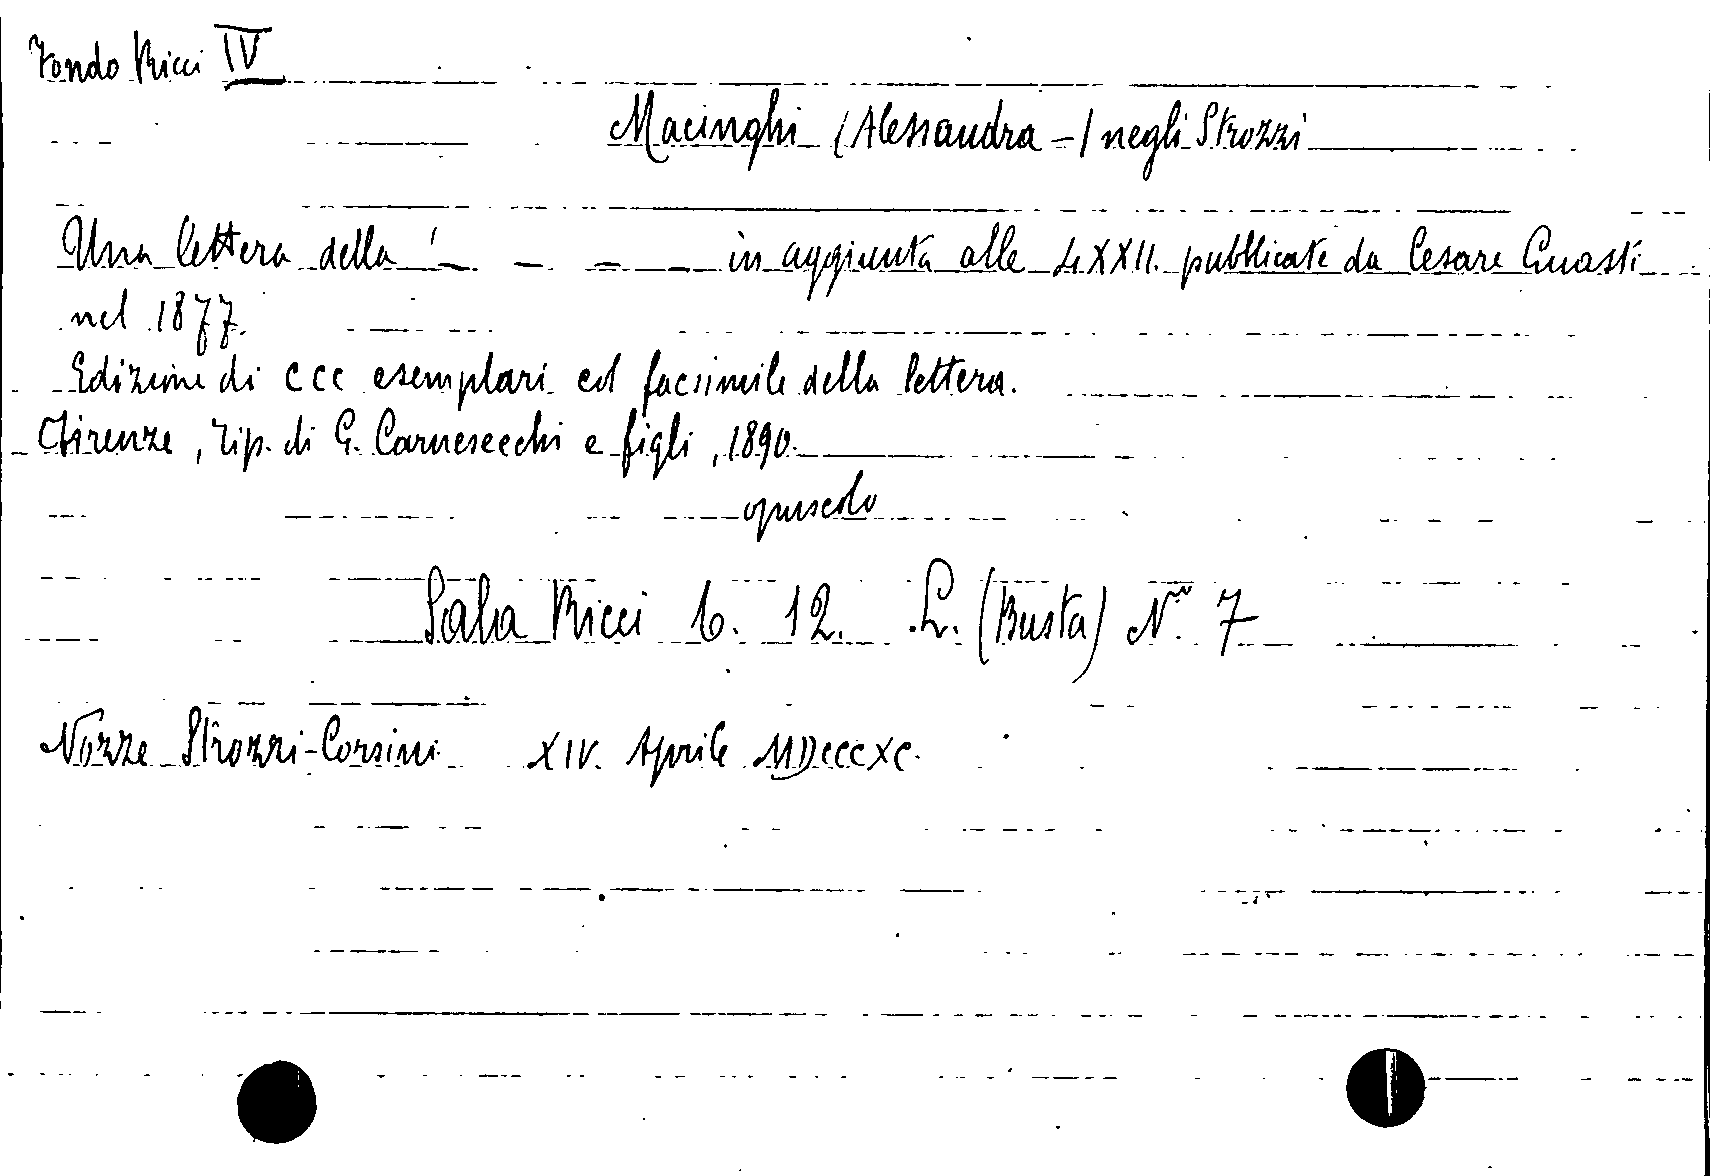 Fondo Ricci IV
Macinghi (Alessandra -) negli Strozzi
Una lettera della - - - - in aggiunta alle LXXII. pubblicate da Cesare Guasti
nel 1877.
Edizione di CCC esemplari col facsimile della lettera.
Firenze, Tip. di G. Carnesecchi e figli, 1890.
opuscolo
Sala Ricci 6. 12. L. (Busta) N.º 7
Nozze Strozzi-Corsini XIV. Aprile MDCCCXC.